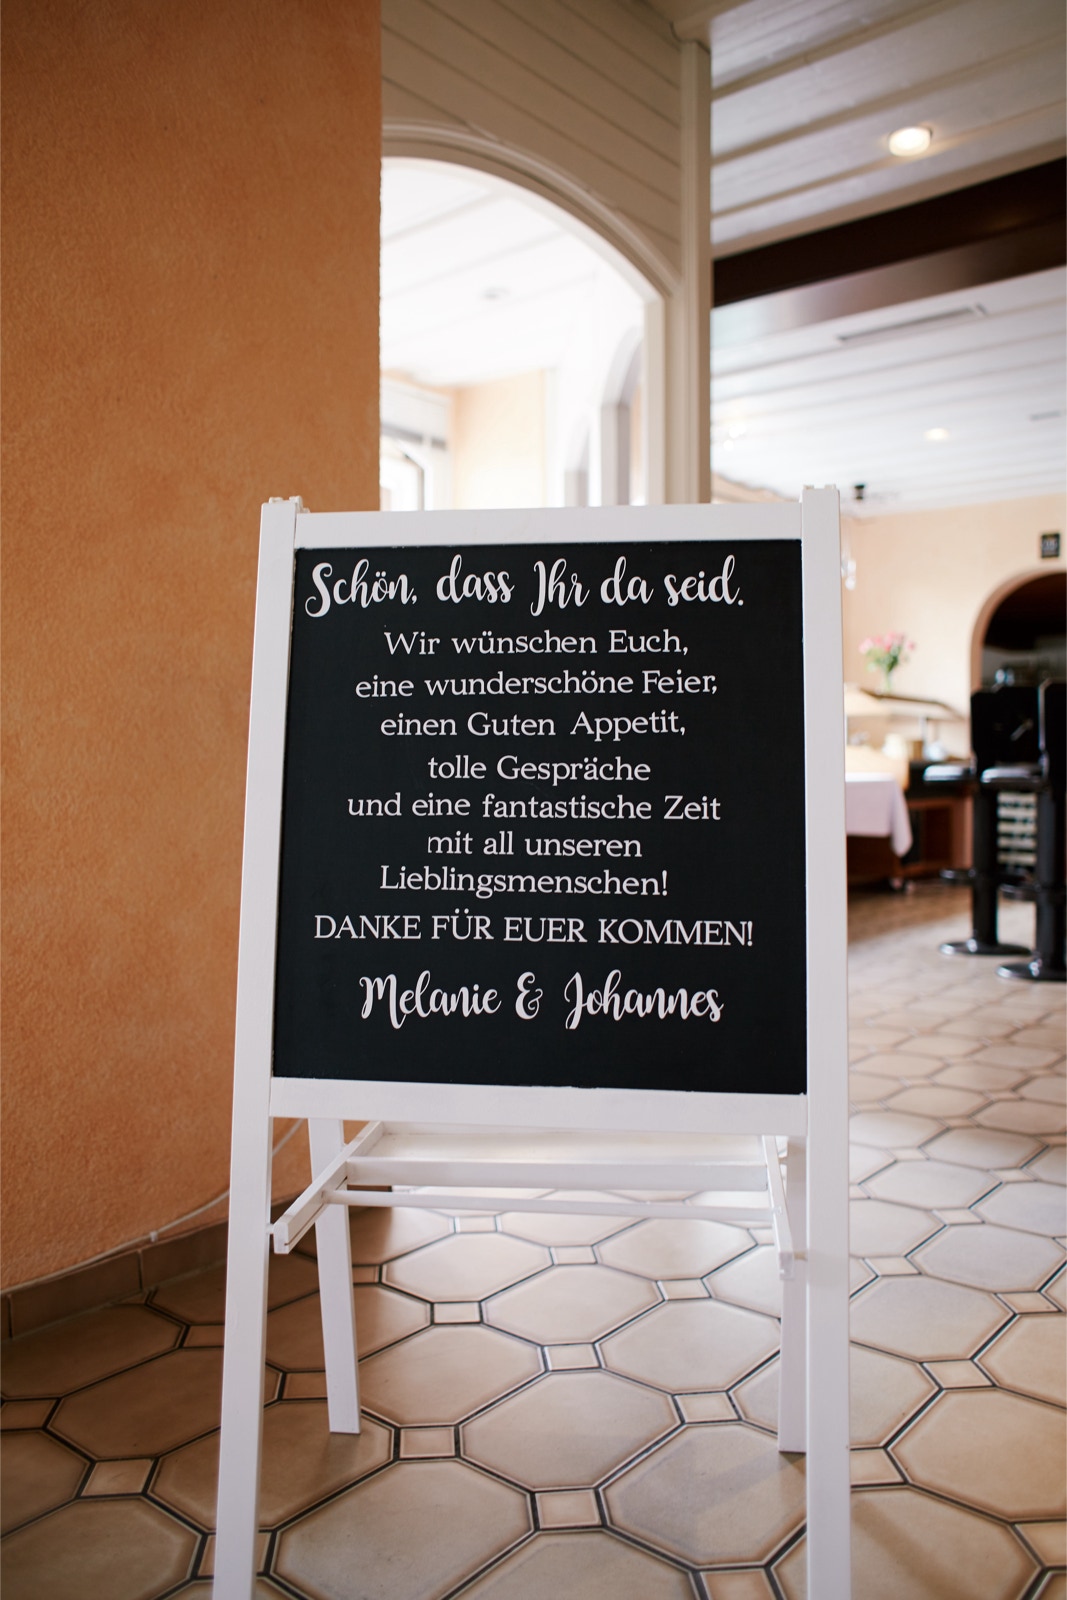 Schön, dass Ihr da seid.
Wir wünschen Euch,
eine wunderschöne Feier,
einen Guten Appetit,
tolle Gespräche
und eine fantastische Zeit
mit all unseren
Lieblingsmenschen!
DANKE FÜR EUER KOMMEN!
Melanie & Johannes